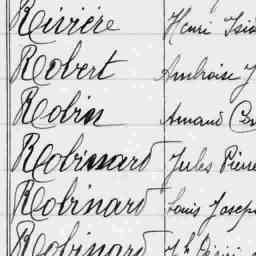 Rivière Henri
Robert Ambroise J
Robin Armand
Robinard Jules Pierre
Robinard Louis Joseph
Robinard